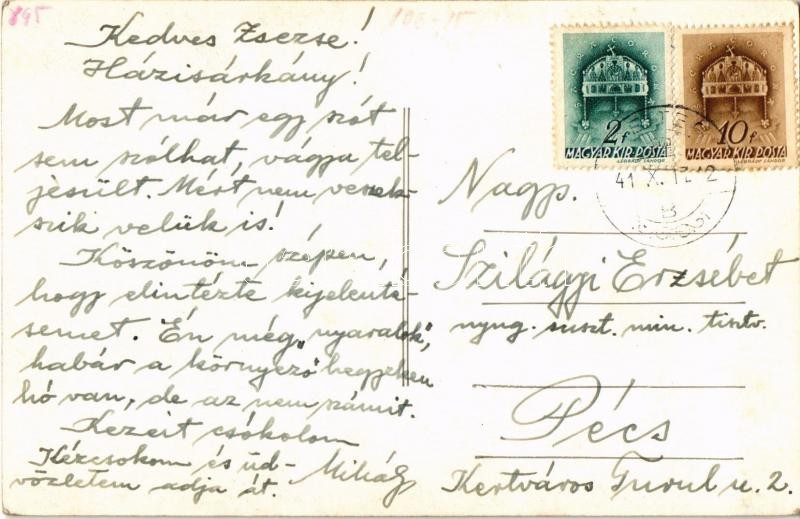 895
Kedves Zsezse!
Házisárkány!
Most már egy szót
sem szólhat, vágya tel-
jesült. Mért nem vesek-
szik velük is!
Köszönöm szépen,
hogy elintézte kijelenté-
semet. Én még „nyaralok”,
habár a környező hegyeken
hó van, de az nem számit.
Kezeit csókolom
Kézcsokom és üd- Mihály
vözletem adja át.
2f
MAGYAR KIR. POSTA
LÉGRÁDY SÁNDOR
10f
MAGYAR KIR. POSTA
LÉGRÁDY SÁNDOR
41 X. 12
B
Nagys.
Szilágyi Erzsébet
nyug. miszt. min. tisztv.
Pécs
Kertváros Turul u. 2.